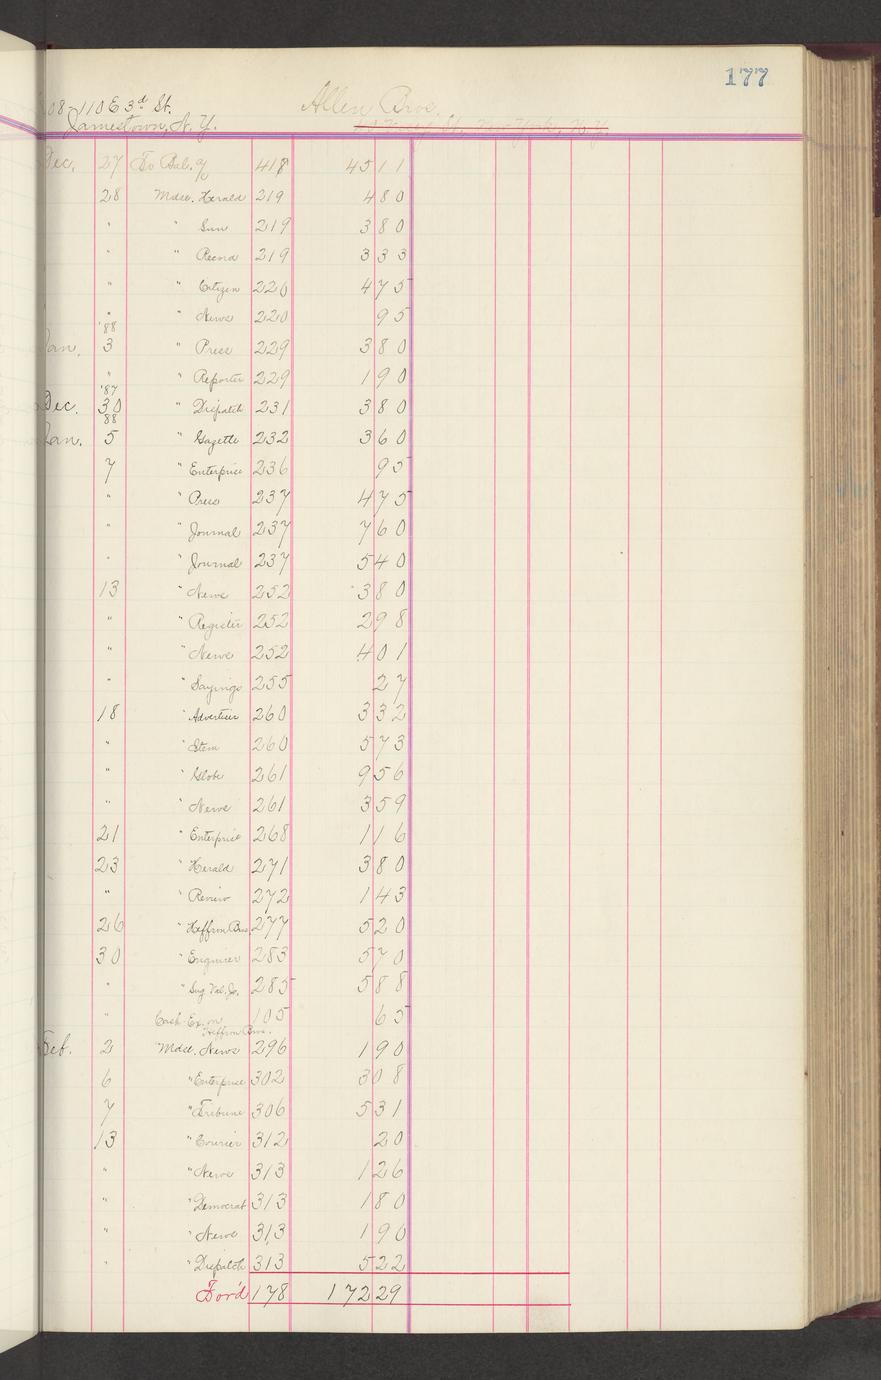 177
108-110 E 3d St. Allen Bros.
Jamestown, N.Y. St. New York, N.Y.
Dec. 27 To Bal. 418 45 11
28 Mdse. Herald 219 4 80
" " Sun 219 3 80
" " Record 219 3 33
" " Citizen 220 4 75
" " News 220 95
'88
Jan. 3 " Press 229 3 80
" " Reporter 229 1 90
'87
Dec. 30 " Dispatch 231 3 80
88
Jan. 5 " Gazette 232 3 60
7 " Enterprise 236 95
" " Press 237 4 75
" " Journal 237 7 60
" " Journal 237 5 40
13 " News 252 3 80
" " Register 252 2 98
" " News 252 4 01
" " Sayings 255 27
18 " Advertiser 260 3 32
" " Stem 260 5 73
" " Globe 261 9 56
" " News 261 3 59
21 " Enterprise 268 1 16
23 " Herald 271 3 80
" " Review 272 1 43
26 " Heffron Bros. 277 5 20
30 " Enquirer 283 5 70
" " Sug. Val. Jo. 285 5 88
" Cash Ex. on 105 65
Heffron Bros.
Feb. 2 Mdse. News 296 1 90
6 " Enterprise 302 3 08
7 " Tribune 306 5 31
13 " Courier 312 20
" " News 313 1 26
" " Democrat 313 1 80
" " News 313 1 90
" " Dispatch 313 5 22
For'd 178 172 29